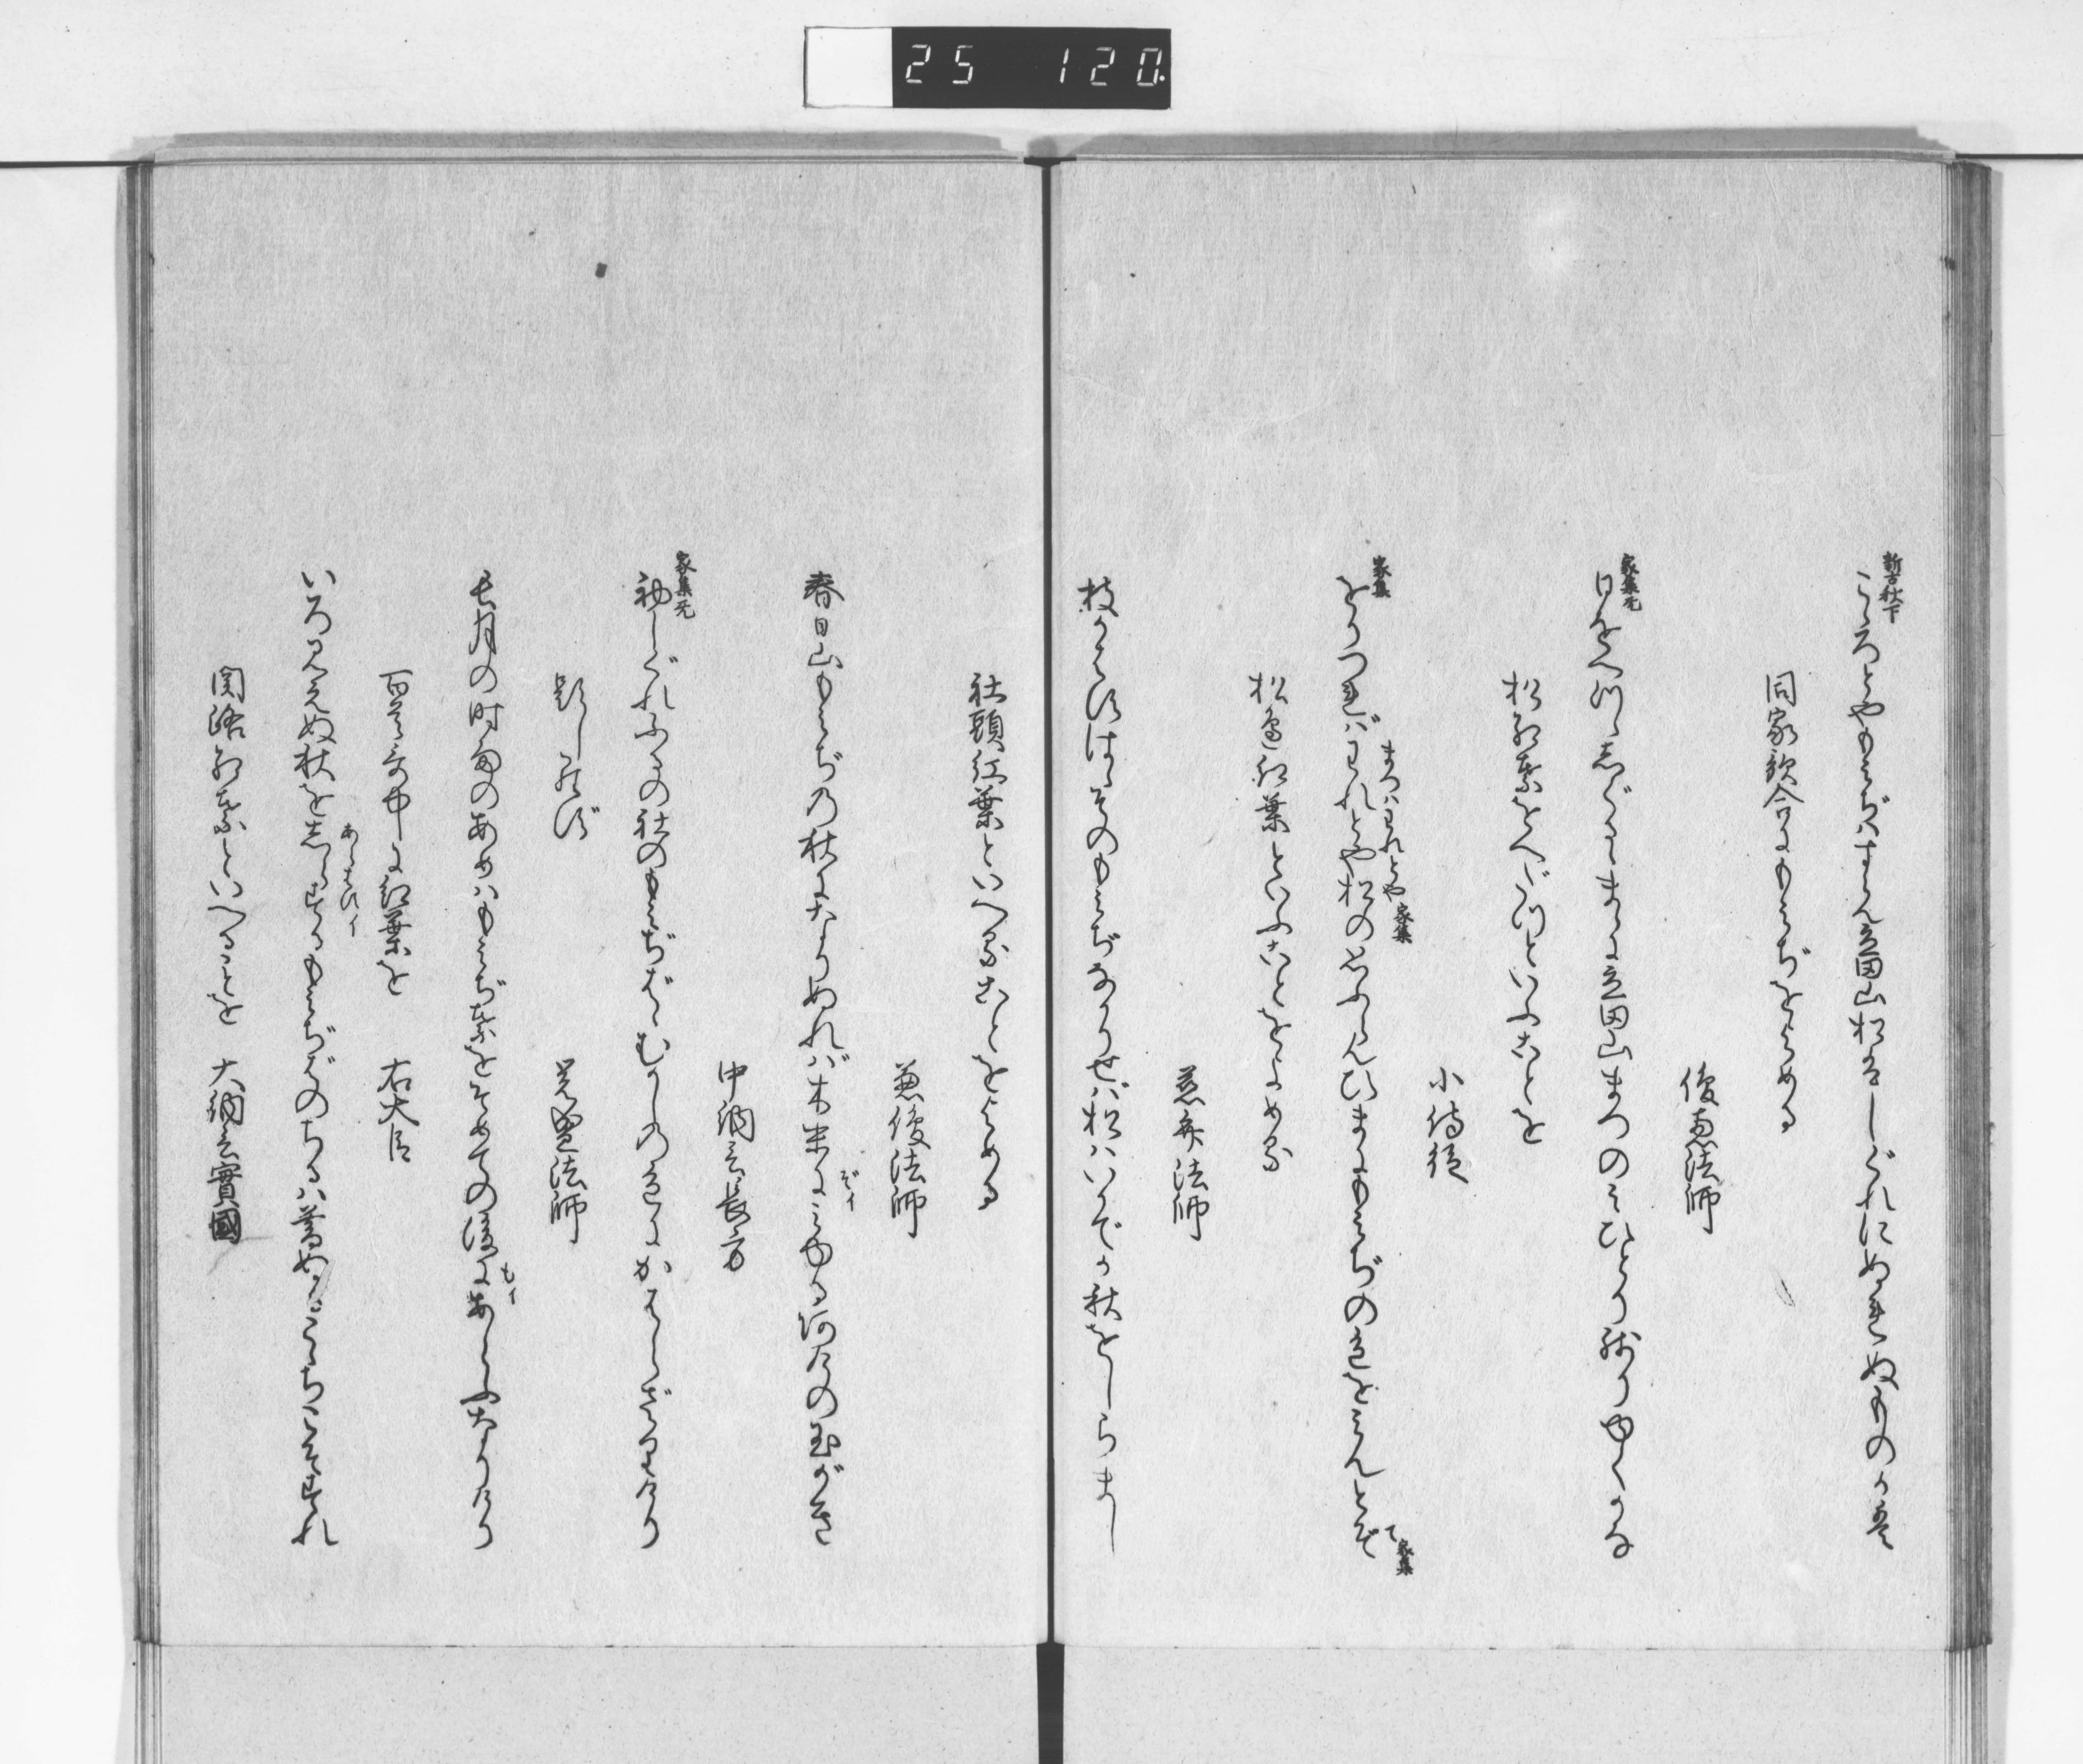 25 120.
新古秋下
こゝろとやもみぢはすらん立田山松はしぐれにぬれぬものかは
同家歌合にもみぢをよめる
俊恵法師
家集元
日をへつゝしぐるゝまゝに立田山まつのみひとり残りゆくかな
松紅葉をへだつといふことを
小侍従
家集
まつハわれとや 家集
をりつればわれとや松の思ふらんひまにもみぢの色をみんとぞ
て 家集
松邊紅葉といふことをよめる
慈弁法師
枝かはすはゝそのもみぢなかりせば松ハいかでか秋をしらまし
社頭紅葉といへることをよめる
兼俊法師
春日山もみぢの秋になりぬれば木末に見ゆるあけの玉がき
ぞイ
中納言長方
家集元
神しぐれふるの社のもみぢばゝむかしの色にかはらざりけり
題しらず
覚盛法師
長月の時雨のあめハもみぢ葉をそめての後にあらしなりけり
もイ
百首哥中に紅葉を
右大臣
いろみえぬ秋をしらするもみぢばのちるハ暮ぬるこゝちこそすれ
あらはすイ
関路紅葉といへることを 大納言實國